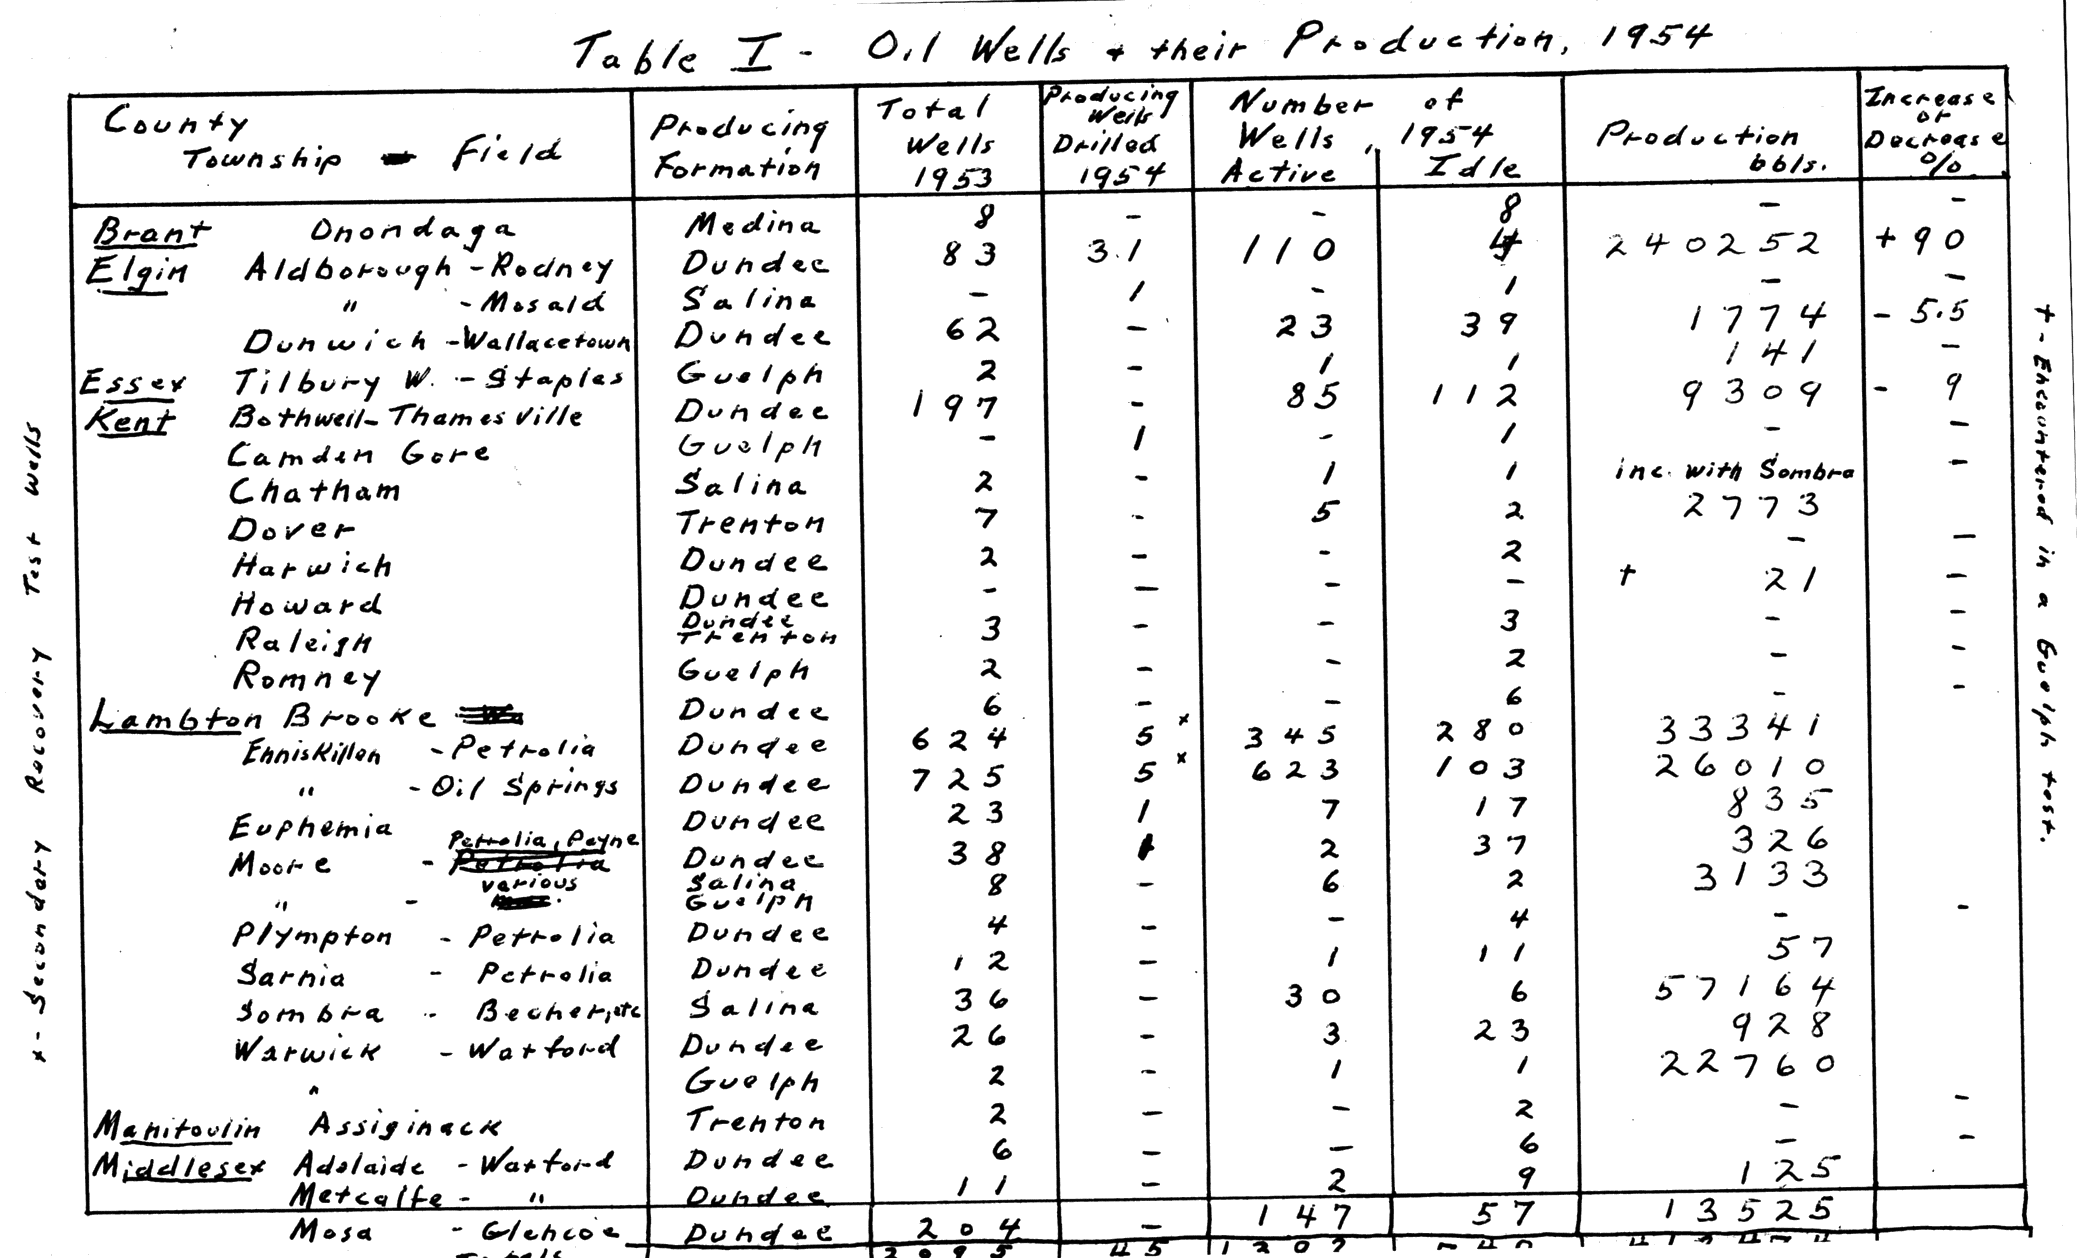 Table I - Oil Wells + their Production, 1954
County
Township - Field
Producing
Formation
Total
Wells
1953
Producing
Wells
Drilled
1954
Number of
Wells, 1954
Active Idle
Production
bbls.
Increase
or
Decrease
%
Brant Onondaga Medina 8 - - 8 - -
Elgin Aldborough - Rodney Dundee 83 31 110 4 240252 + 90
" - Mosald Salina - 1 - 1 - -
Dunwich - Wallacetown Dundee 62 - 23 39 1774 - 5.5
Essex Tilbury W. - Staples Guelph 2 - 1 1 141 -
Kent Bothwell - Thamesville Dundee 197 - 85 112 9309 - 9
Camden Gore Guelph - 1 - 1 - -
Chatham Salina 2 - 1 1 inc. with Sombra -
Dover Trenton 7 - 5 2 2773
Harwich Dundee 2 - - 2 - -
Howard Dundee - - - - + 21 -
Raleigh Dundee Trenton 3 - - 3 - -
Romney Guelph 2 - - 2 - -
Lambton Brooke Dundee 6 - - 6 - -
Enniskillen - Petrolia Dundee 624 5 x 345 280 33341
" - Oil Springs Dundee 725 5 x 623 103 26010
Euphemia Dundee 23 1 7 17 835
Moore - Petrolia, Payne Dundee 38 1 2 37 326
" - various Salina Guelph 8 - 6 2 3133
Plympton - Petrolia Dundee 4 - - 4 - -
Sarnia - Petrolia Dundee 12 - 1 11 57
Sombra - Becher, etc Salina 36 - 30 6 57164
Warwick - Watford Dundee 26 - 3 23 928
" Guelph 2 - 1 1 22760
Manitoulin Assiginack Trenton 2 - - 2 - -
Middlesex Adelaide - Watford Dundee 6 - - 6 - -
Metcalfe - " Dundee 11 - 2 9 125
Mosa - Glencoe Dundee 204 - 147 57 13525
x - Secondary Recovery Test Wells
+ - Encountered in a Guelph test.